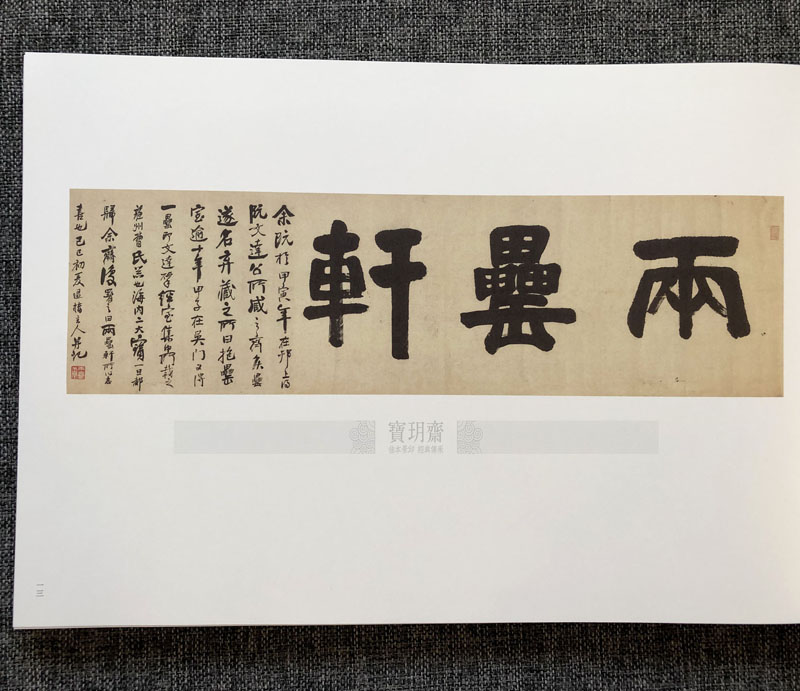 兩罍軒
余既於甲寅年在邗上得
阮文達公所藏之齊侯罍
遂名弆藏之所曰抱罍
室逾十年甲子在吳门又得
一罍即文達揅經室集中所載之
蘇州曹氏器也海內二大寶一旦都
歸余齋復署之曰兩罍軒所以志
喜也己巳初夏退樓主人并記
寶玥齋
一三